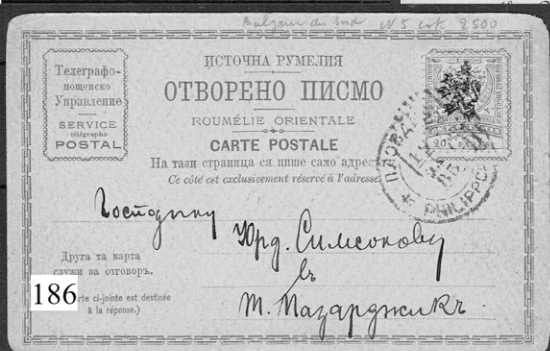 Bulgarie du Sud N 5 2500
ИСТОЧНА РУМЕЛИЯ
Телеграфо-
пощенско
Управление
SERVICE
télégrapho
POSTAL
ОТВОРЕНО ПИСМО
ROUMÉLIE ORIENTALE
CARTE POSTALE
На тази страница са пише само адресъ
Ce côté est exclusivement réservé à l'adresse.
ПЛОВДИ
PHILIPPO
20
Господину
Юрд. Симеонову
въ
Т. Пазарджикъ.
Друга та карта
служи за отговоръ.
arte ci-jointe est destinée
à la réponse.)
186